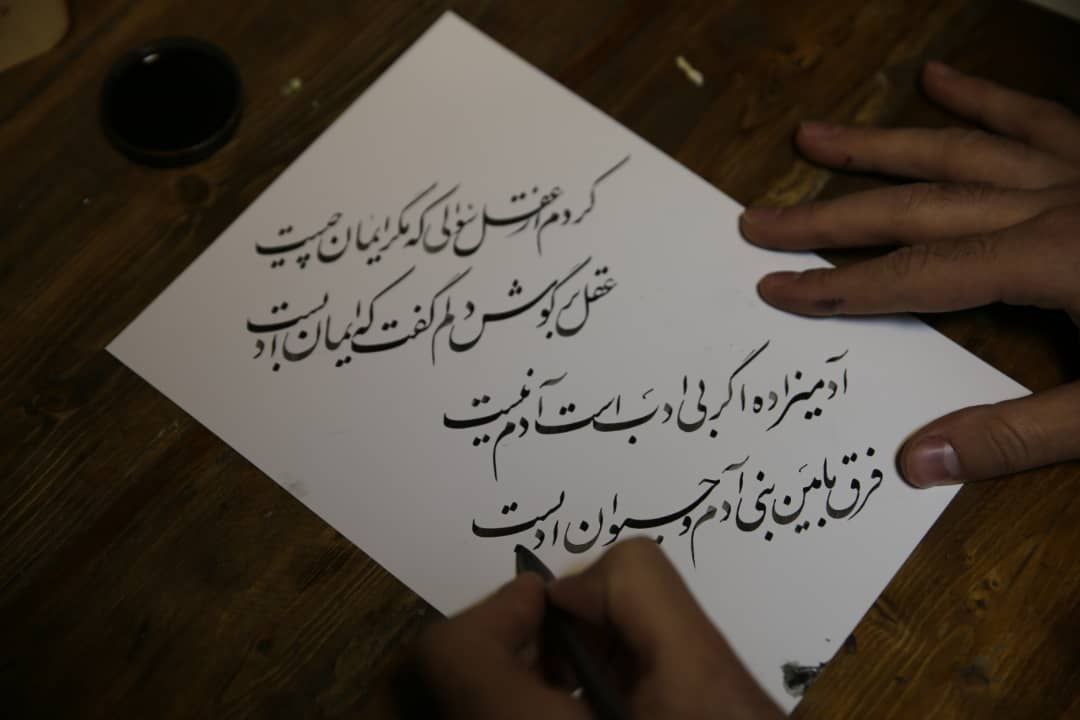 کردم از عقل سؤالی که مگر ایمان چیست
عقل بر گوش دلم گفت که ایمان ادبست
آدمیزاده اگر بی ادب است آدم نیست
فرق مابین بنی آدم و حیوان ادبست